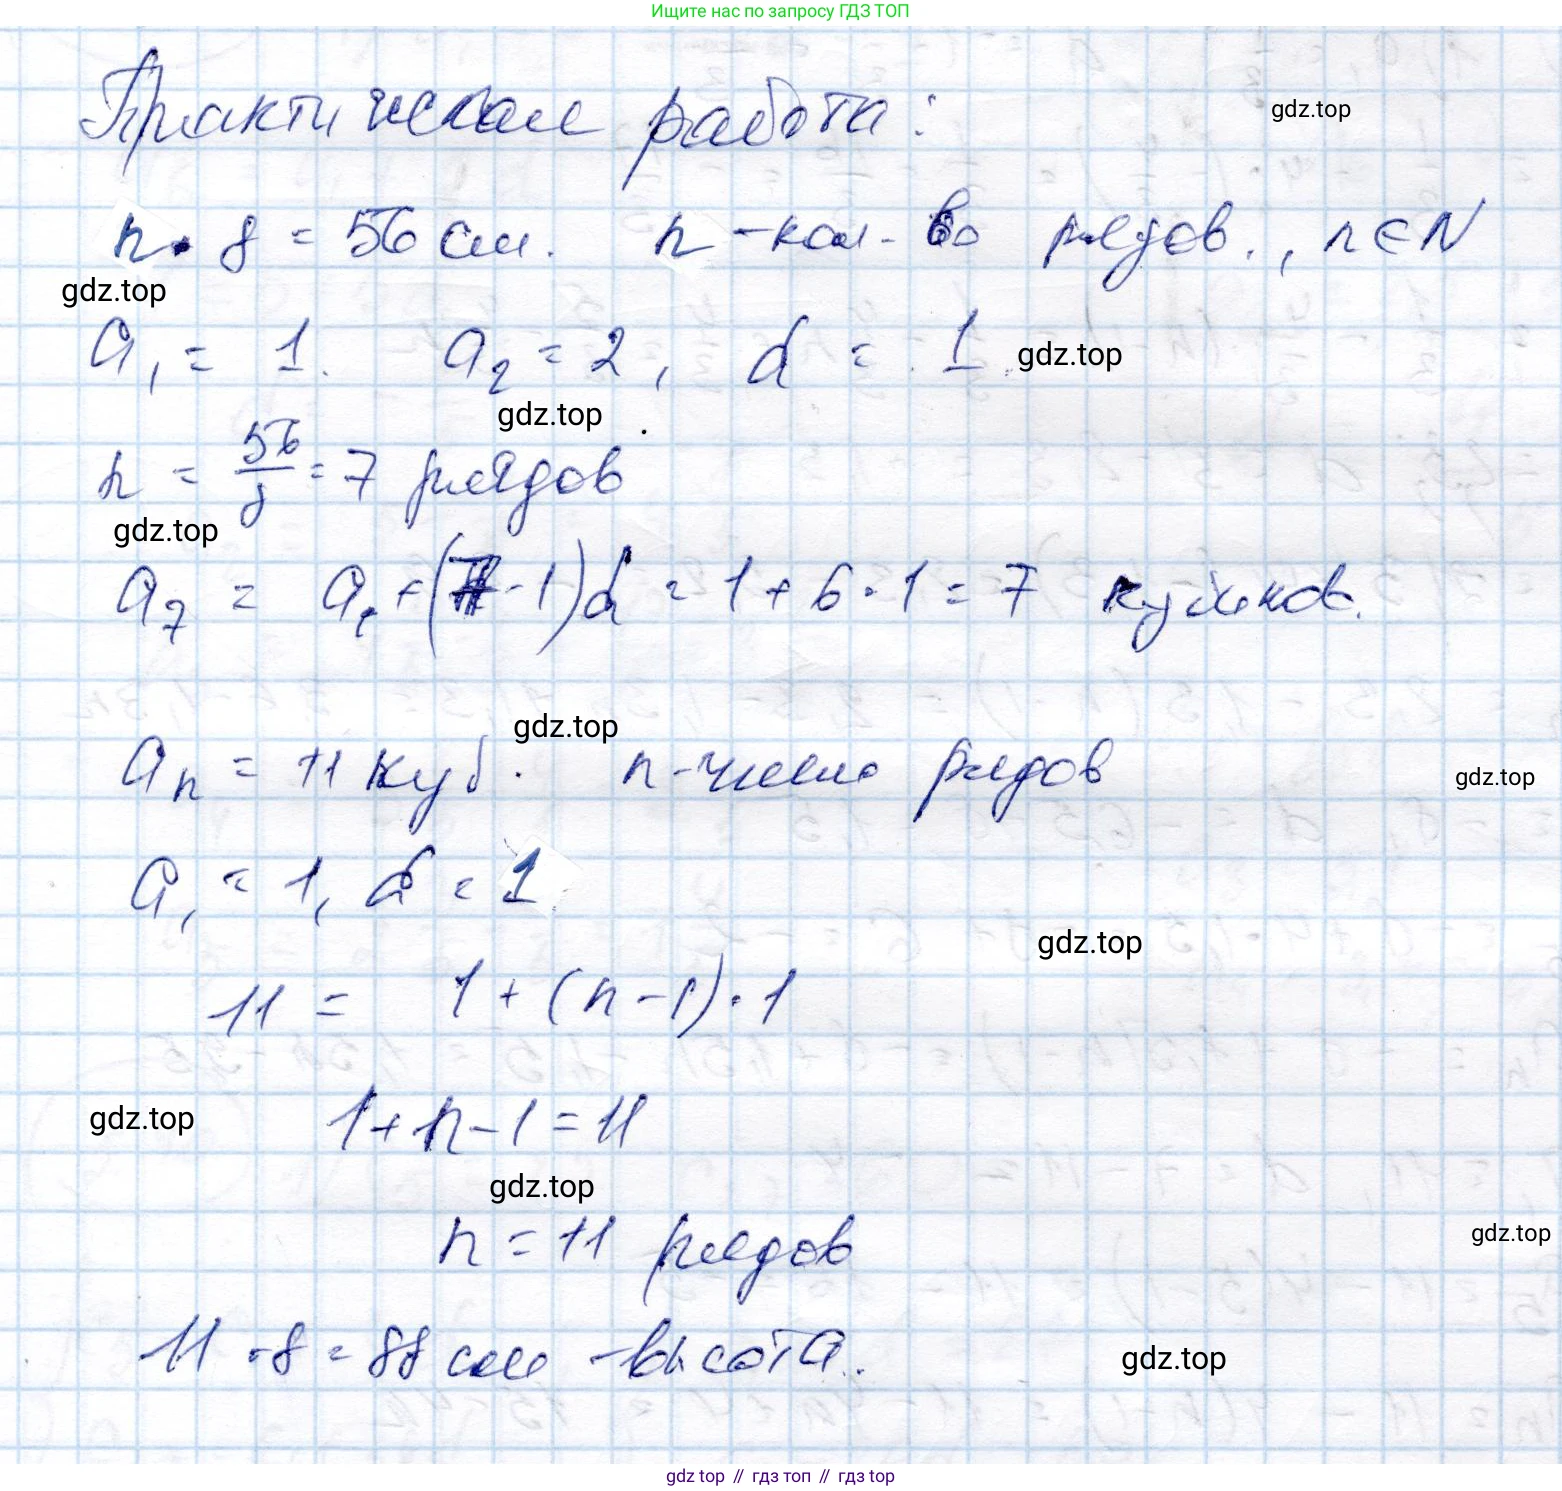 Ищите нас по запросу ГДЗ ТОП
Практическая работа:
gdz.top
n · 8 = 56 см. n - кол-во рядов., n ∈ N
gdz.top
a₁ = 1. a₂ = 2, d = 1.
gdz.top
gdz.top
n = 56/8 = 7 рядов
gdz.top
a₇ = a₁ + (7-1)d = 1 + 6 · 1 = 7 кубиков.
gdz.top
aₙ = 11 куб. n - число рядов
gdz.top
a₁ = 1, d = 1.
gdz.top
11 = 1 + (n - 1) · 1
1 + n - 1 = 11
gdz.top
gdz.top
n = 11 рядов
gdz.top
11 · 8 = 88 см - высота.
gdz.top
gdz top // гдз топ // гдз top